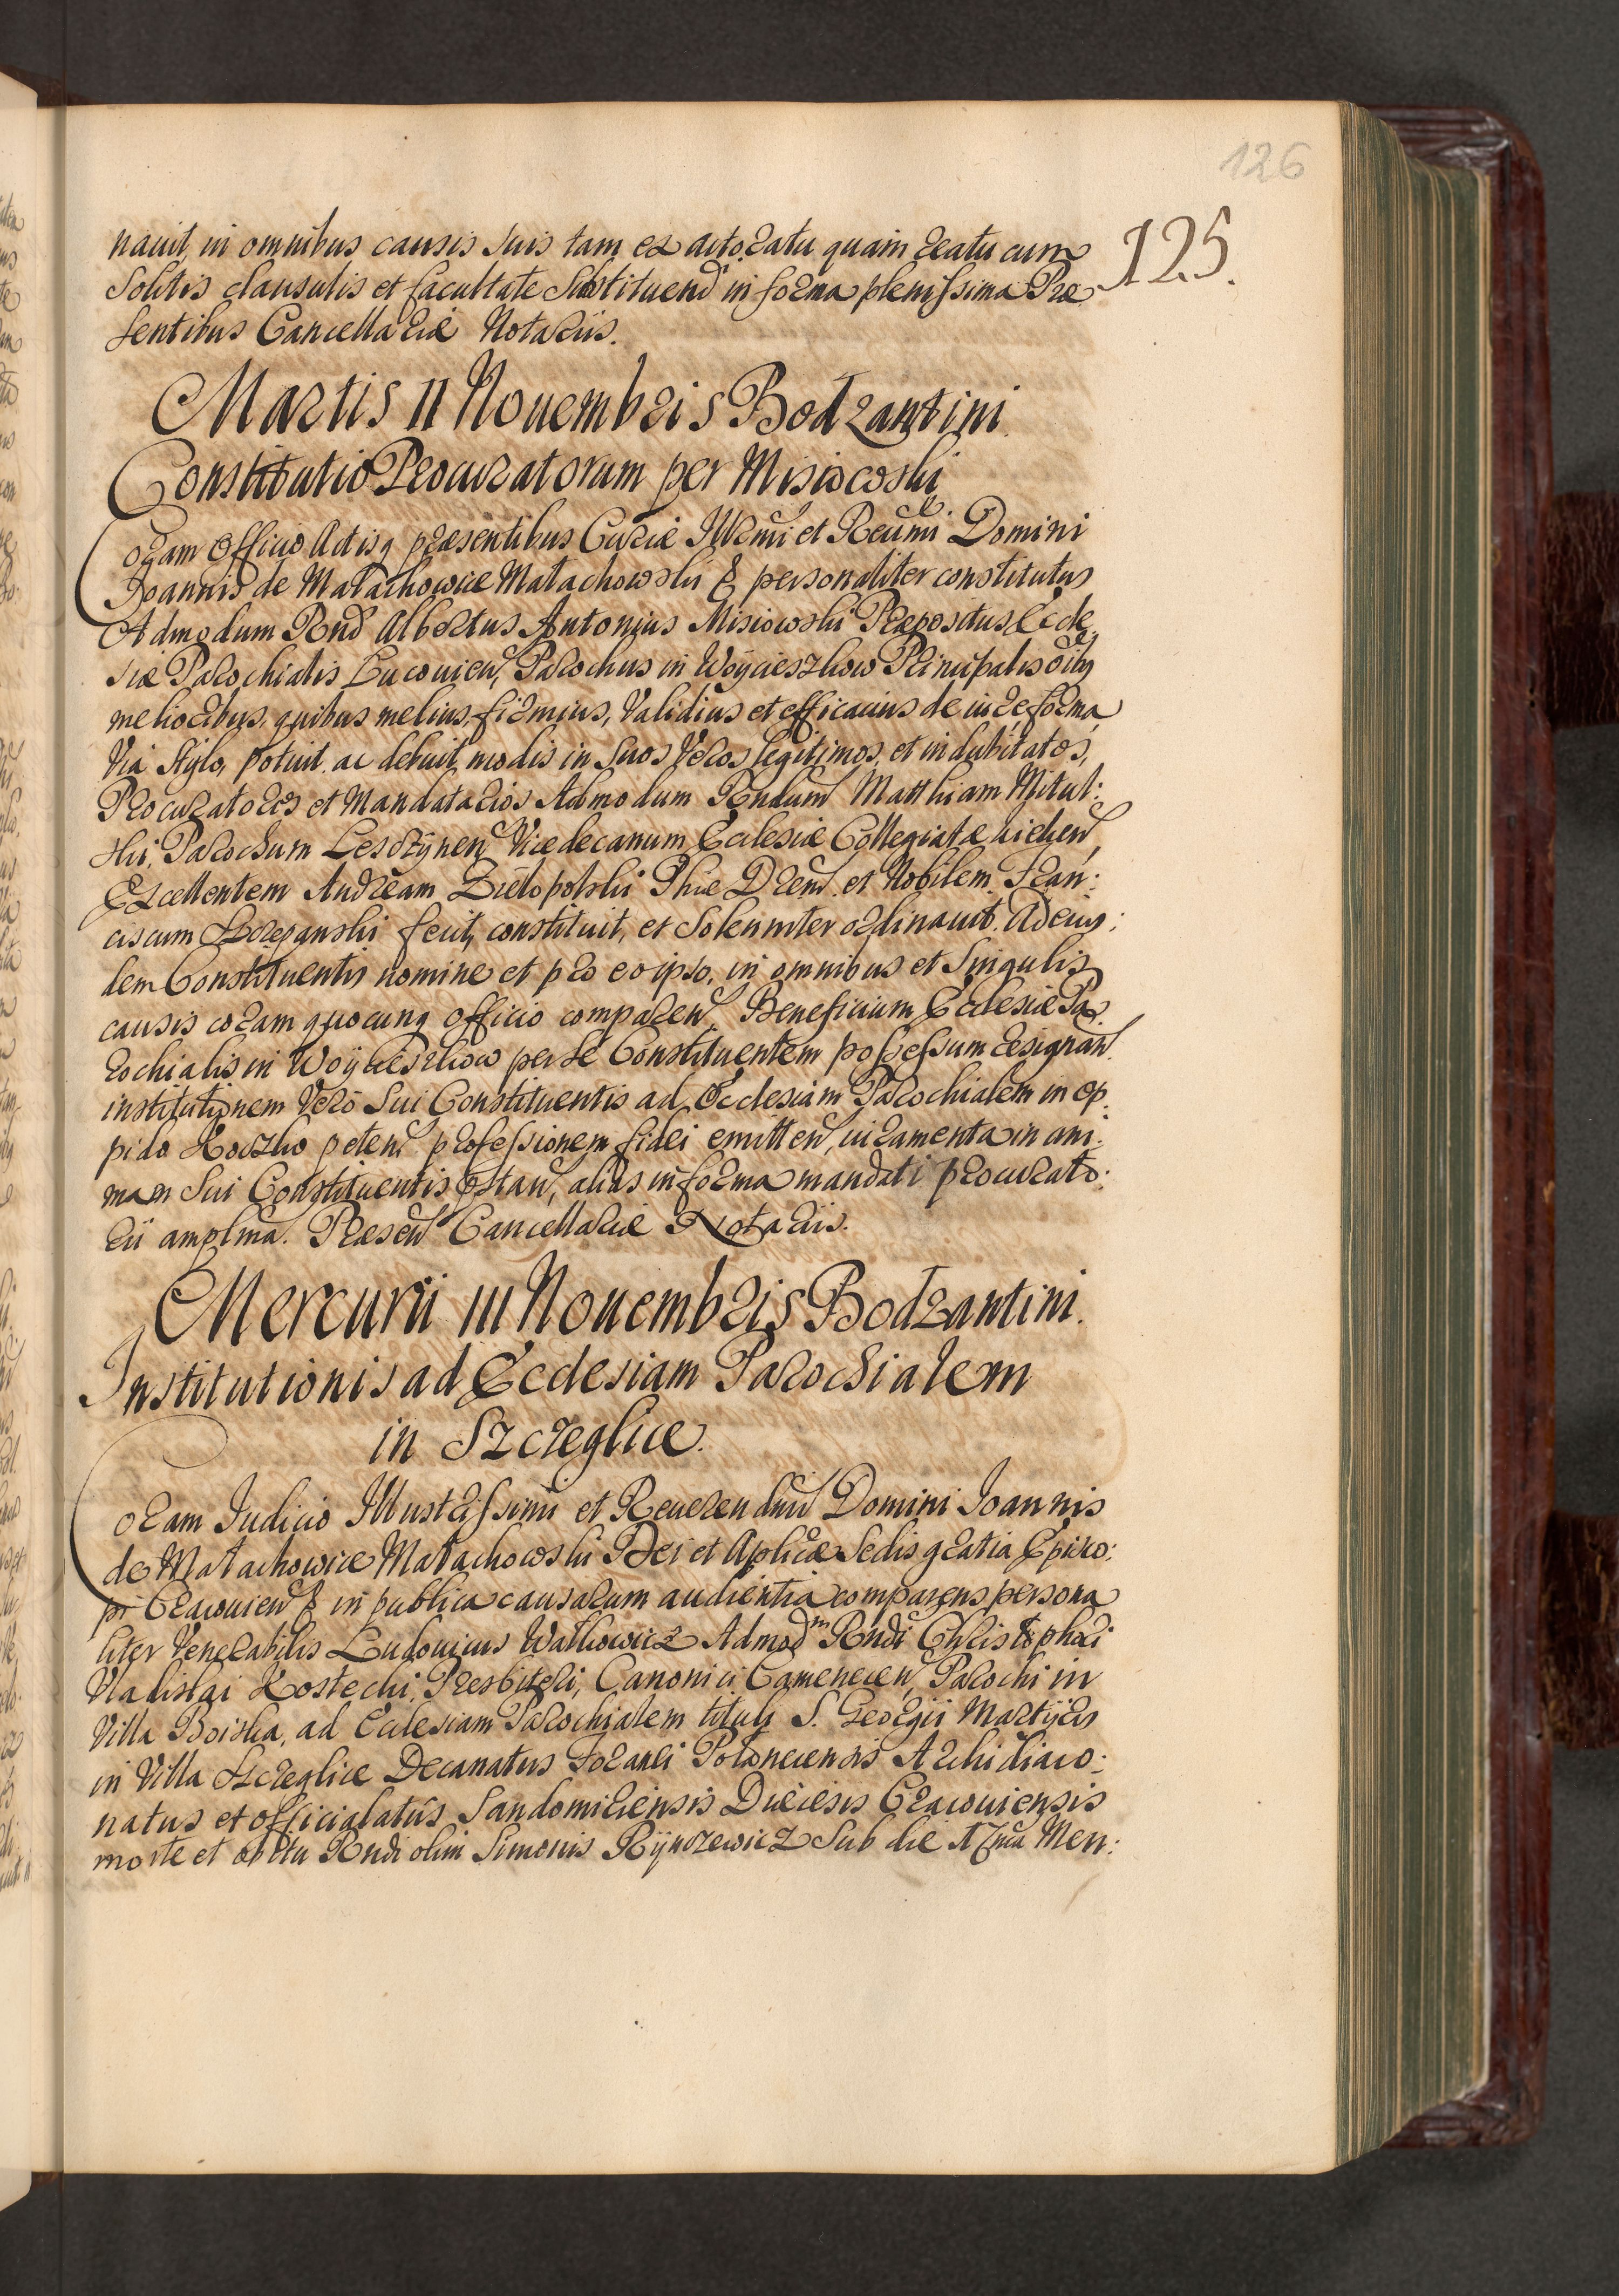 126
125.
nauit, in omnibus causis suis tam ex actoratu quam reatu cum
Solitis clausulis et facultate Substituend in forma plenissima Præ
sentibus Cancellariæ Notariis.
Martis II Nouembris Bodzantini
Constitutio Procuratorum per Misiowski
Coram Officio Actisq præsentibus Curiæ Illrmi et Reumi Domini
Joannis de Małachowice Małachowski & personaliter constitutus
Admodum Rnd Albertus Antonius Misiowski Præpositus Eccle
siæ Parochialis Lucouien, Parochus in Woÿcieszkow Principalis oibus
melioribus, quibus melius, firmius, Validius et efficacius de iure forma
Via Stylo, potuit ac debuit modis in suos Veros legitimos, et indubitatos,
Procuratores et Mandatarios Admodum Rndum Matthiam Mitul:
ski, Parochum Leszczÿnen Vicedecanum Ecclesiæ Collegiatæ hichen
Excellentem Andream Zielopolski Phiæ Drem et Nobilem Fran:
ciscum Szczepanski fecit, constituit, et Solemniter ordinauit. Ad eius:
dem Constituentis nomine et pro eo ipso, in omnibus et Singulis
causis coram quocunq officio comparen, Beneficium Ecclesiæ Pa
rochialis in Woÿcieszkow per se Constituentem possessum resignan
institutionem Vero Sui Constituentis ad Ecclesiam Parochialem in op
pido Kocsko peten professionem fidei emitten, iuramenta in ani:
mam Sui Constituentis præstan, alias in forma mandati procurato:
rii amplma. Præsen Cancellariæ Notariis.
Mercurii III Nouembris Bodzantini.
Institutionis ad Ecclesiam Parochialem
in Szczeglice.
Coram Iudicio Illustrissimi et Reuerendmi Domini Ioannis
de Małachowice Małachowski Dei et Aplicæ Sedis gratia Episco:
pi Cracouien & in publica causarum audientia comparens persona
liter Venerabilis Ludouicus Walkowicz Admodm Rndi Christophori
Vladislai Kostecki, Presbiteri, Canonici Camenecen, Parochi in
Villa Boiska, ad Ecclesiam Parochialem tituli S. Georgii Martÿris
in Villa Szczeglice Decanatus Foranei Połanecensis Archidiaco:
natus et officialatus Sandomiriensis Diæcesis Cracouiensis
morte et obitu Rndi olim Simonis Rÿnczewicz Sub die Men: